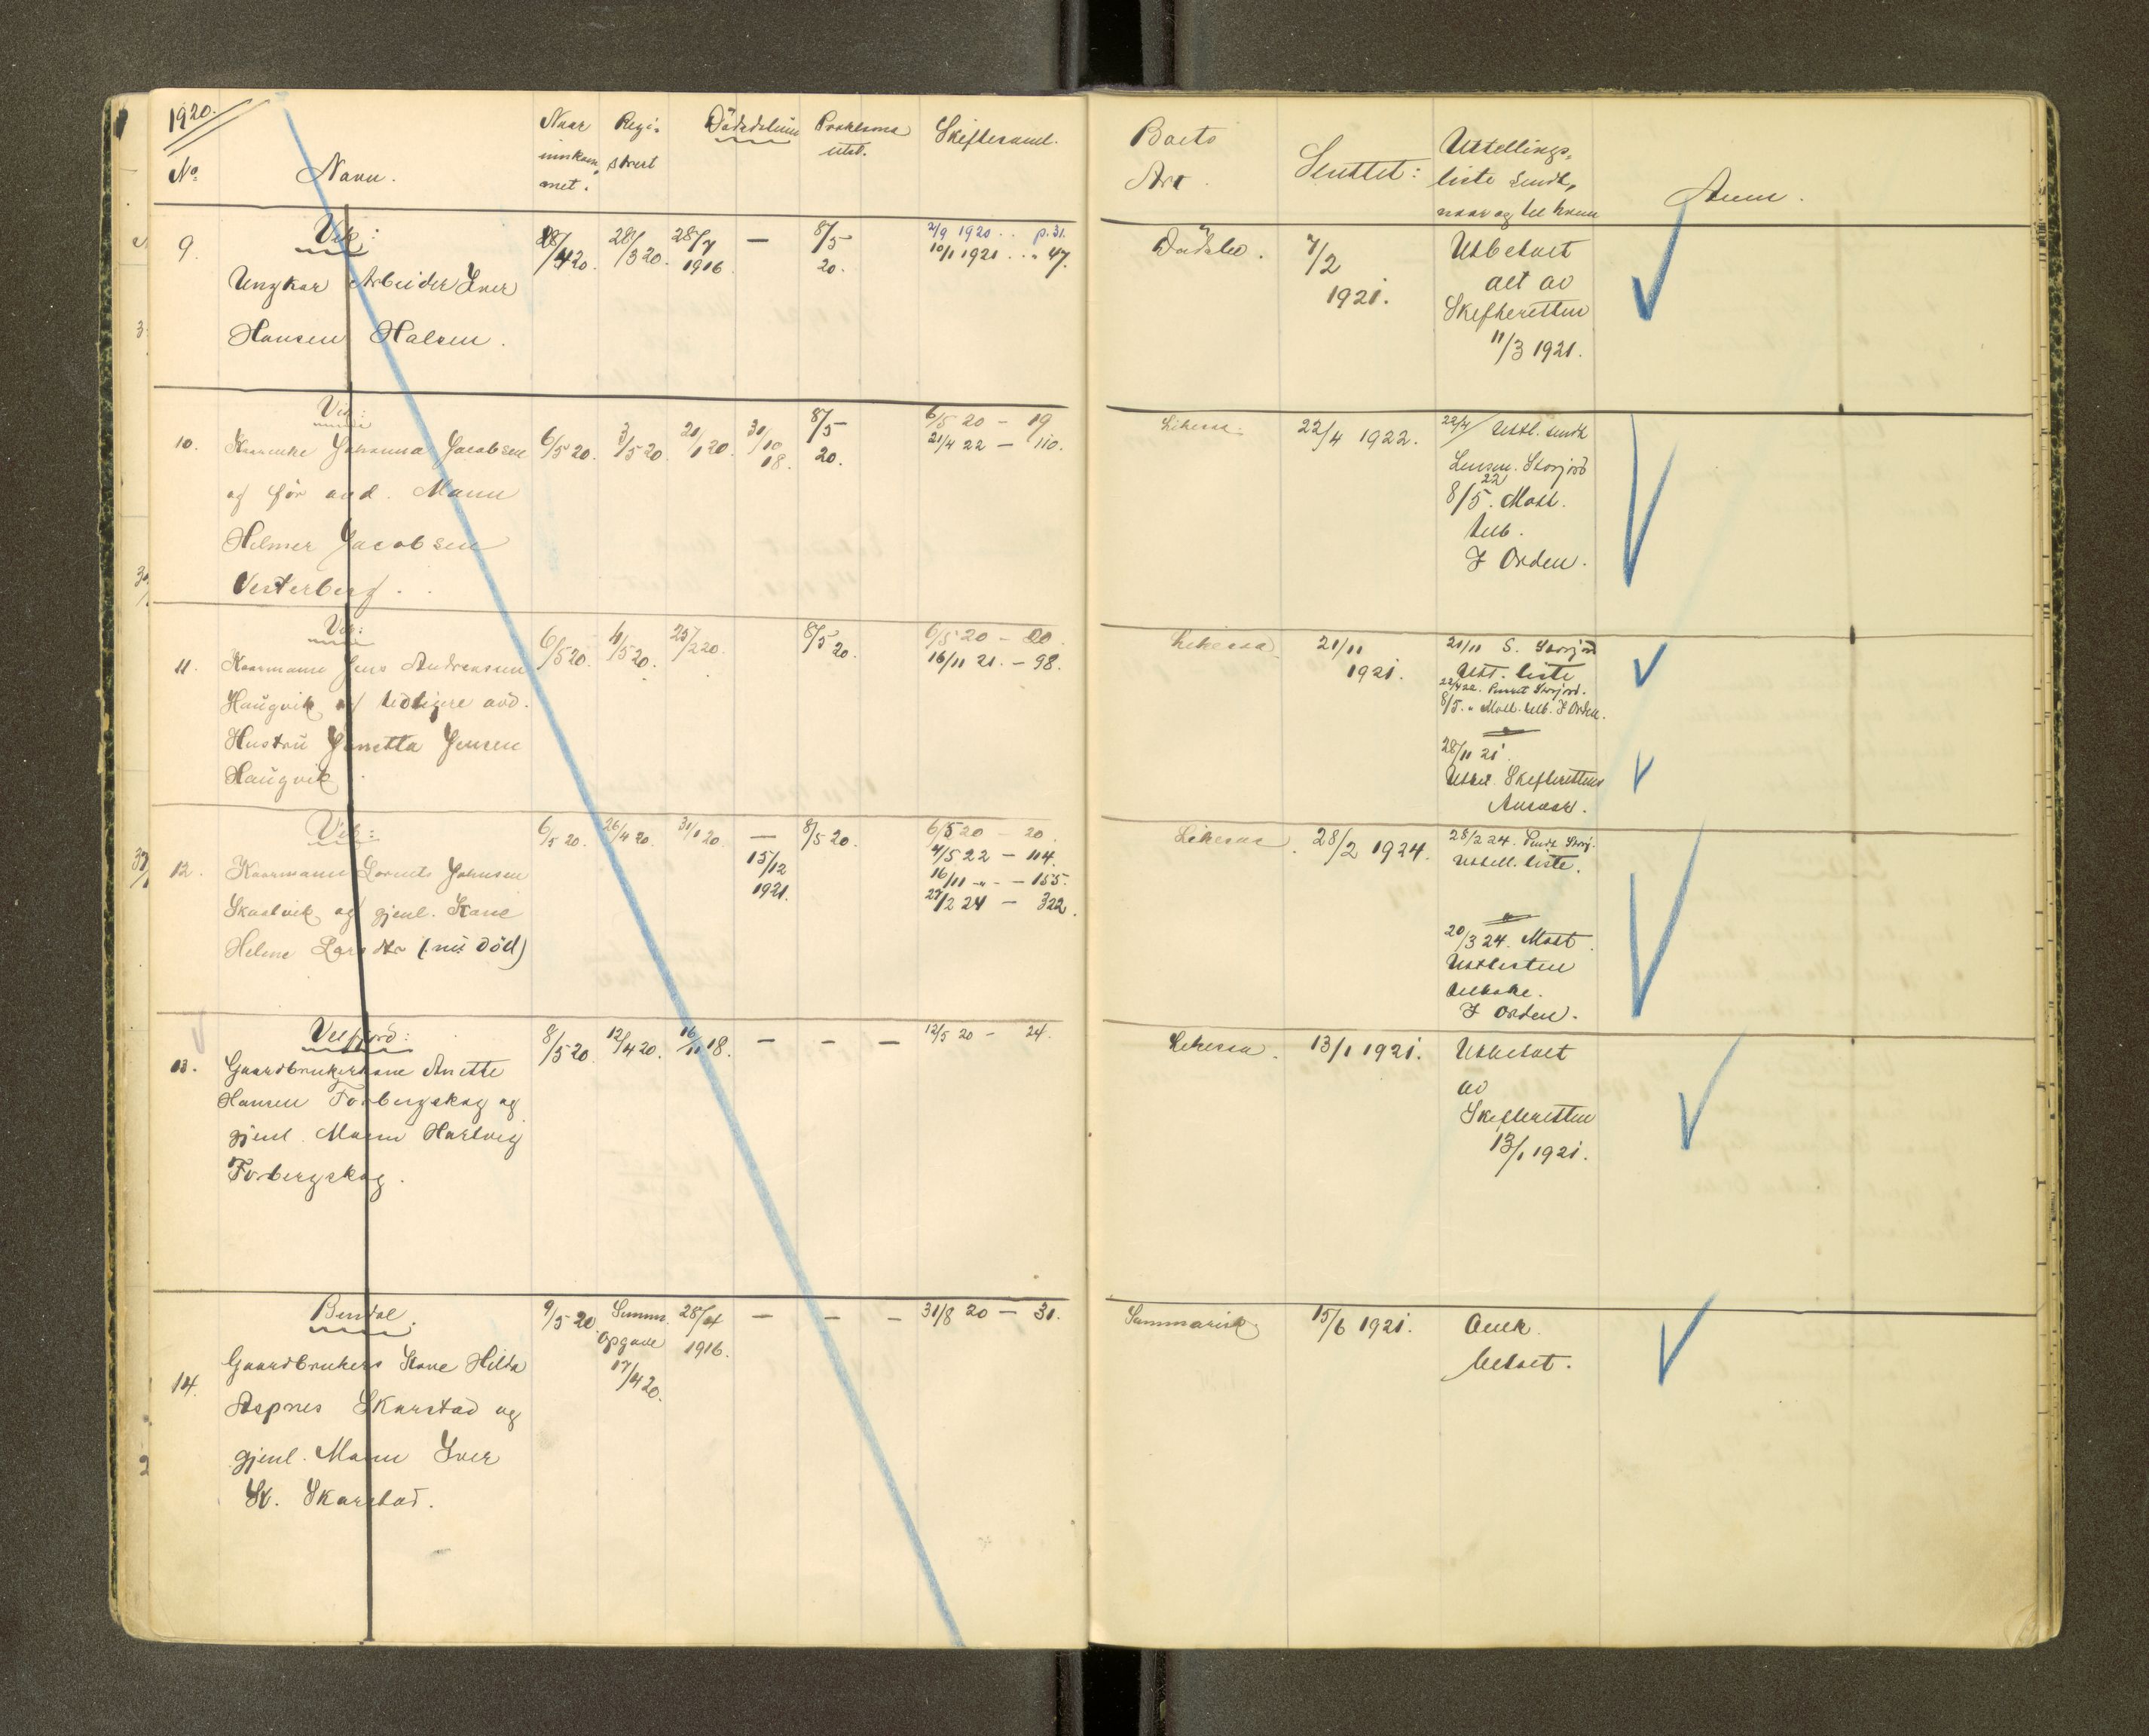 1920.
No. Navn. Naar innkom, met. Regi, strert Dödsdatum Proklama utst. Skiftesaml. Boets Art. Sluttet: Utstellings, liste sendt, naar og til hvem Anm.
9. Vik: 28/4 20. 28/3 20. 28/7 1916. — 8/5 20. 2/9 1920 . . p. 31. Dödsbo. 7/2 1921. Utbetalt
Ungkar Arbeider Iver 10/1 1921 . . „ 47. alt av
Hansen Halsen. Skifteretten
11/3 1921.
10. Vik: 6/5 20. 3/5 20. 21/1 20. 31/10 18. 8/5 20. 6/5 20 — 19 22/4 1922. 22/4 Utstl. sendt
Johanna Jacobsen 21/4 22 — 110. Lensm. Storjord
og før avd. Mann 8/5 22. Mott.
Helmer Jacobsen tilb.
Vesterberg. I Orden.
11. Vik: 6/5 20. 4/5 20. 25/2 20. 8/5 20. 6/5 20 — 20. 21/11 1921. 21/11 S. Storjord
Kaarmann Jens Andreassen 16/11 21. — 98. Utst. liste
Haugvik og tidligere avd. 22/4 22. Purret Storjord.
Hustru Jensen 8/5. „ Mott. tilb. I Orden.
Haugvik 28/11 21.
Skifterettens
Ansvar.
12. Vik: 6/5 20. 26/4 20. 31/1 20. — 8/5 20. 6/5 20 — 20. 28/2 1924. 28/2 24. Sendt Storj.
Kaarmann Lorents Johnsen 15/12 1921. 4/5 22 — 114. Utstill. liste.
16/11 -„- — 155.
og gjenl. Kone 27/2 24 — 322. 20/3 24. Mott.
Helene Larsdtr (nu död) Utstlisten
tilbake.
I Orden.
13. Velfjord: 8/5 20. 12/4 20. 16/11 18. — — — 12/5 20 — 24. 13/1 1921. Utbetalt
Gaardbrukerkone Anette av
Hansen Forbergskog og Skifteretten
gjenl. Mann Hartvig 13/1 1921.
Forbergskog.
14. Bindal. 9/5 20. Summ. opgave 17/4 20. 28/4 1916. — — — 31/8 20 — 31. Summarisk 15/6 1921. betalt.
Gaardbrukers Kone Hilda
Aspnes Skarstad og
gjenl. Mann Iver
Skarstad.